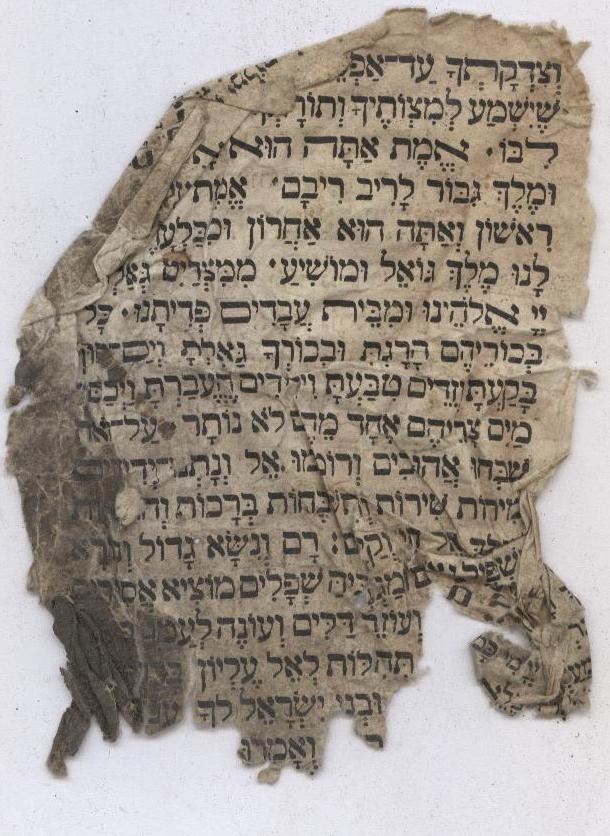 וְצִדְקָתְךָ עַד־אַפְ
שֶׁיִּשְׁמַע לְמִצְוֹתֶיךָ וְתוֹרָ
לִבּוֹ· אֱמֶת אַתָּה הוּא
וּמֶלֶךְ גִּבּוֹר לָרִיב רִיבָם· אֱמֶת
רִאשׁוֹן וְאַתָּה הוּא אַחֲרוֹן וּמִבַּלְעָ
לָנוּ מֶלֶךְ גּוֹאֵל וּמוֹשִׁיעַ· מִמִּצְרַיִם גְּאַלְ
יְיָ אֱלֹהֵינוּ וּמִבֵּית עֲבָדִים פְּדִיתָנוּ· כָּל
בְּכוֹרֵיהֶם הָרָגְתָּ וּבְכוֹרְךָ גָּאָלְתָּ וְיַם־סוּף
בָּקַעְתָּ וְזֵדִים טִבַּעְתָּ וִידִידִים הֶעֱבַרְתָּ וַיְכַסּוּ
מַיִם צָרֵיהֶם אֶחָד מֵהֶם לֹא נוֹתָר· עַל־זֹאת
שִׁבְּחוּ אֲהוּבִים וְרוֹמְמוּ אֵל וְנָתְנוּ יְדִידִים
זְמִירוֹת שִׁירוֹת וְתִשְׁבָּחוֹת בְּרָכוֹת
וְקַיָּם: רָם וְנִשָּׂא גָּדוֹל וְנוֹרָא
מַשְׁפִּיל גֵּאִים וּמַגְבִּיהַּ שְׁפָלִים מוֹצִיא אֲסִירִים
וְעוֹזֵר דַּלִּים וְעוֹנֶה לְעַמּוֹ
תְּהִלּוֹת לְאֵל עֶלְיוֹן
וּבְנֵי יִשְׂרָאֵל לְךָ עָנוּ
וְאָמְרוּ